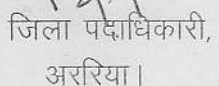 जिला पदाधिकारी,
अररिया।